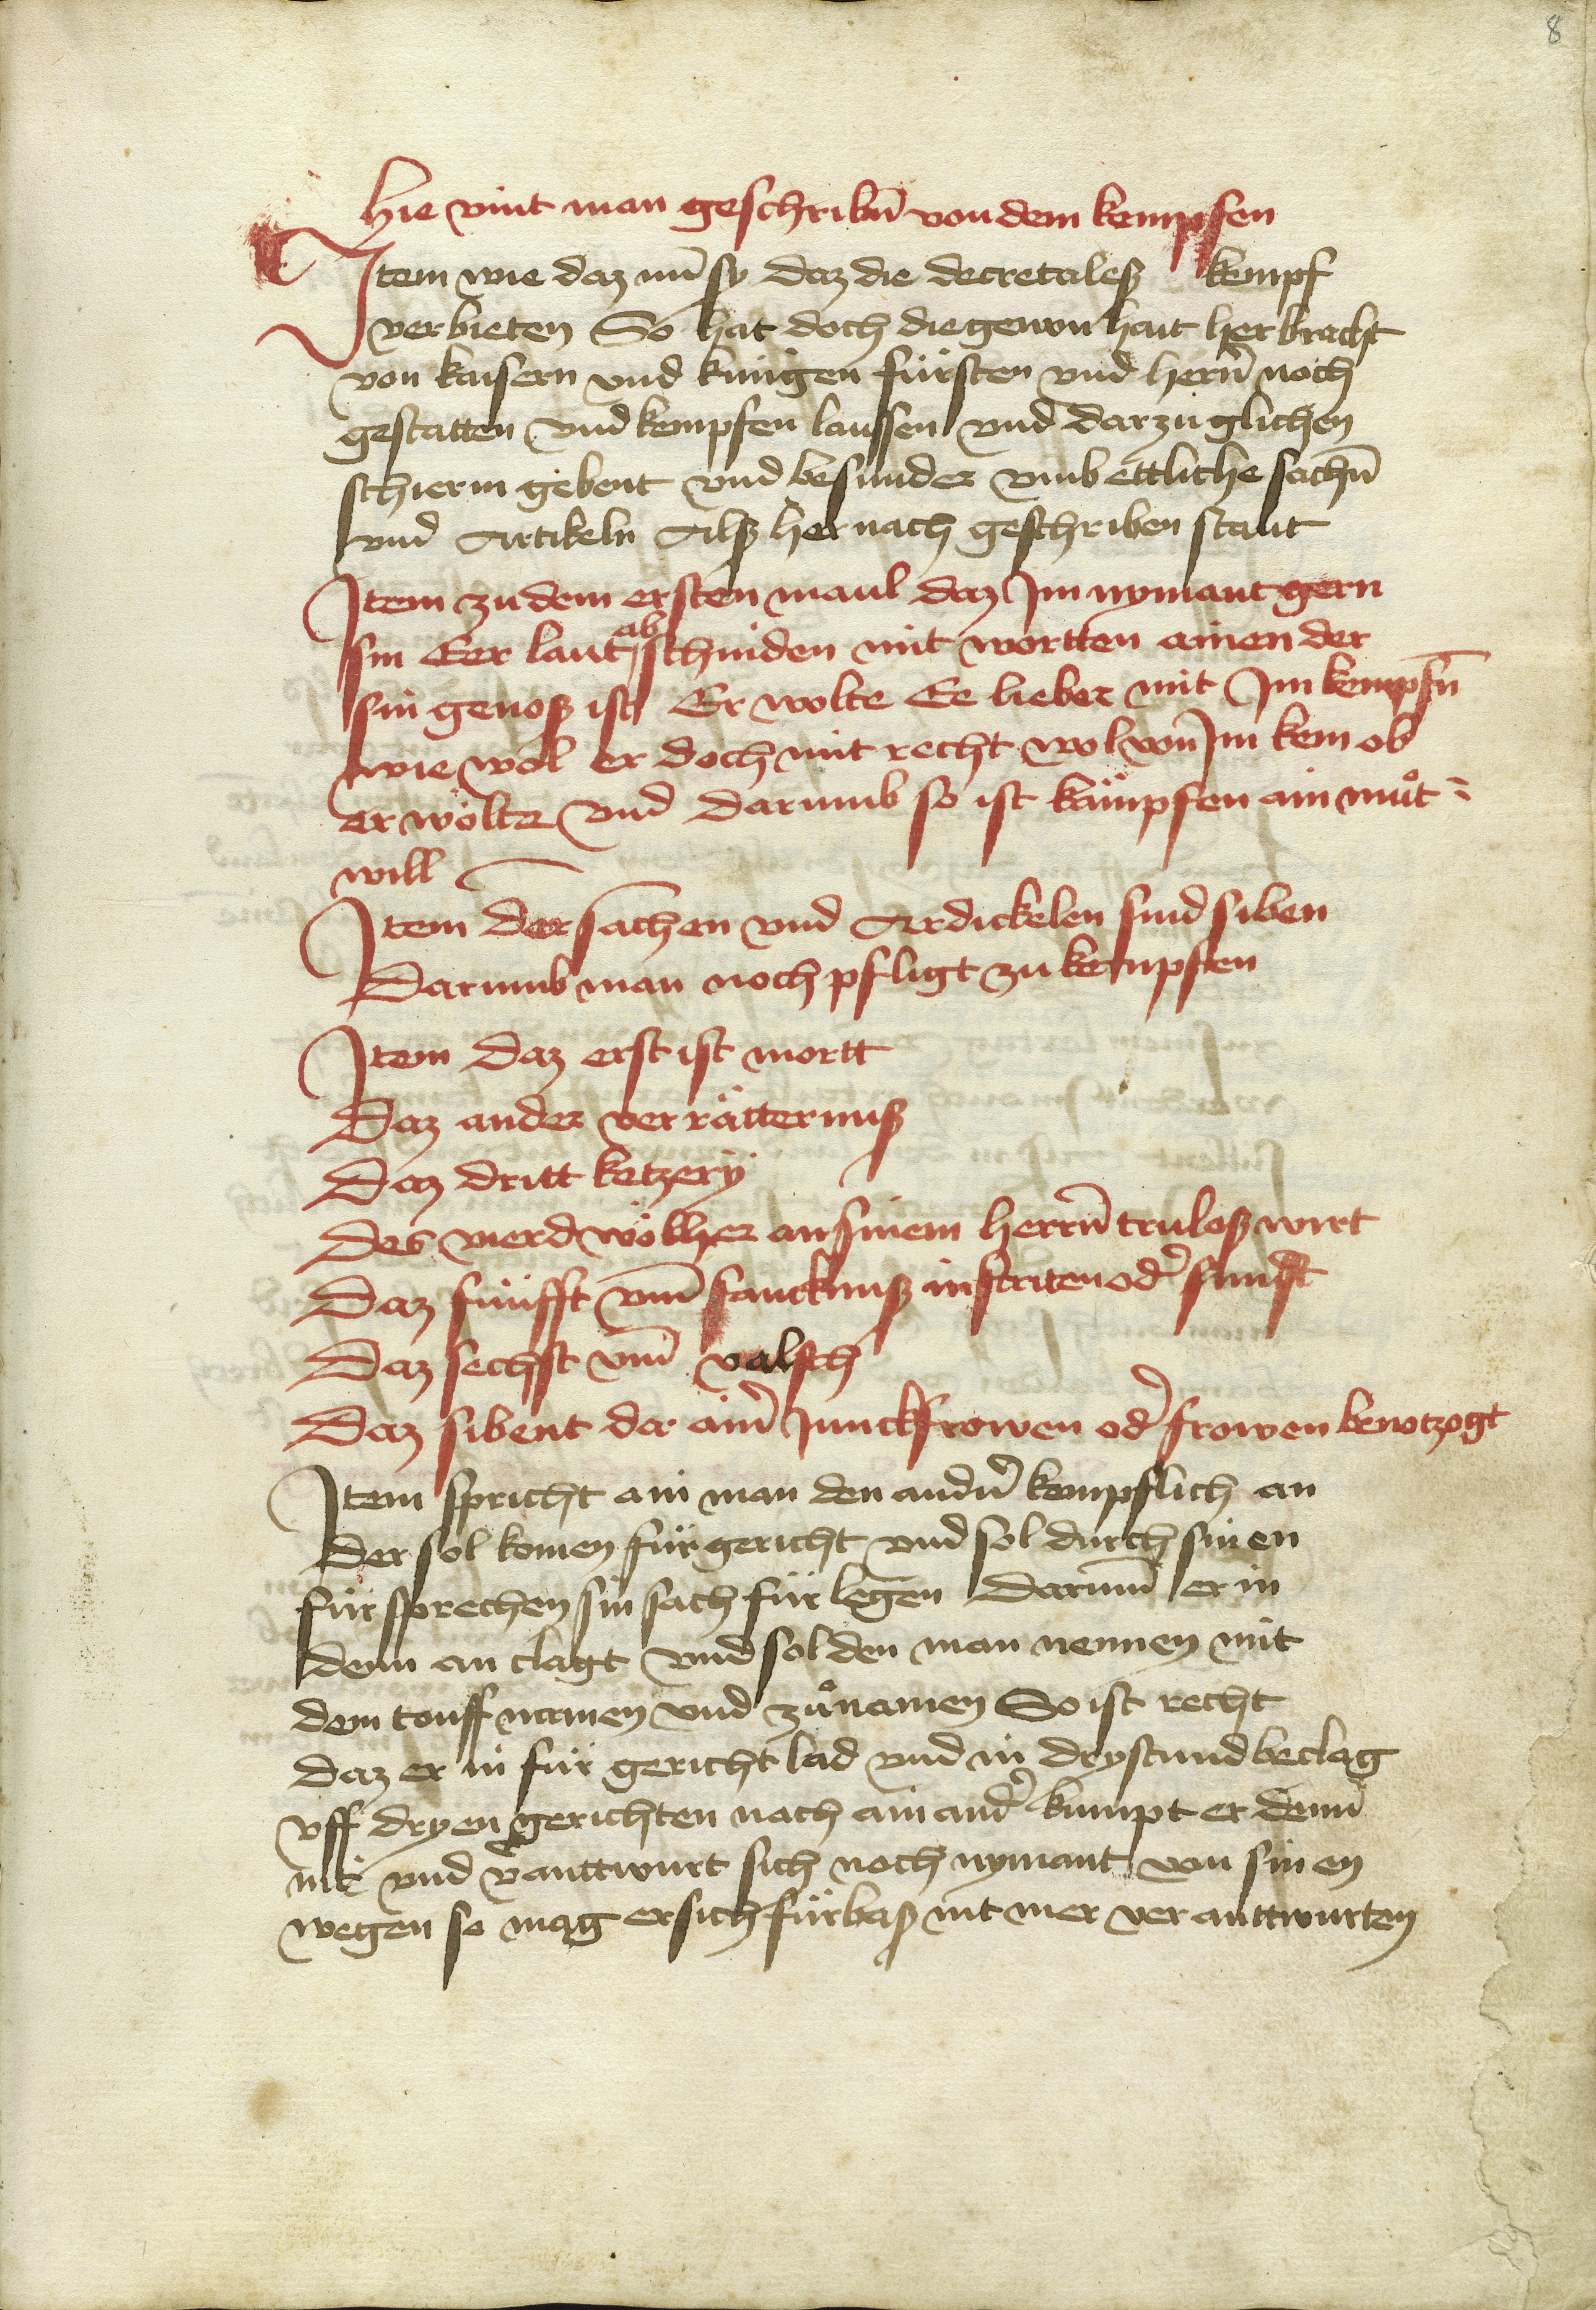 8
Hie vint man geschribñ von dem kempffen
Item wie daz nũ sy daz die decretales kempf
verbieten So hat doch die gewon hait her bracht
von kaisern vnd küngen fürsten vnd herñ noch
gestatten vnd kempfen laussen vnd darzu glichen
schierm gebent vnd besunder vmb ettliche sachñ
vnd Artikeln Alß her nach geschriben staut
Item zu dem ersten maul daz Im nymant gern
sin Eer laut ab schniden mit wortten ainen der
sin genoß ist Er wolte Ee lieber mit Im kempfñ
wie wol er doch mit recht wol von Im kem ob
er wölte vnd darumb so ist kämpfen ain muͦt =
will
Item Der sachen vnd Ardickelen sind siben
Darumb man noch pfligt zu kempfen
Item Daz erst ist mortt
Daz ander verrätternuß
Daz dritt ketzerÿ
Des vierd wölher an sinem herrñ trulos wirt
Daz fünfft vm̃ sancknuß in striten od̾ sunst
Daz sechst vm̃ valsch
Daz sibent da ainr Junckfrowen od̾ frowen benotzogt
Item spricht ain man den andñ kempflich an
Der sol komen für gericht vnd sol durch sinen
fürsprechen sin sach für legen Darum̃ er in
denn an clagt vnd sol den man nennen mit
dem touff namen vnd zuͦnamen So ist recht
daz er in für gericht lad vnd in drystund beclag
vff dryen gerichten nach ain and̾ kumpt er denñ
nit vnd v̾anttwurt sich noch nymant von sinen
wegen so mag er sich fürbaß nit mer ver anttwurten